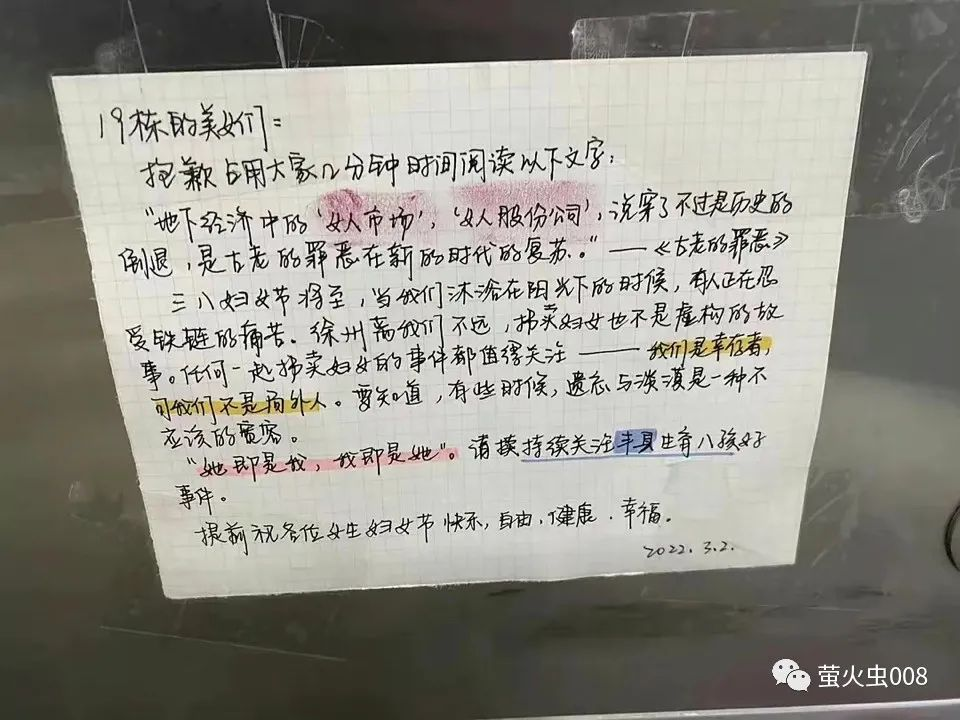 19栋的美女们：
抱歉占用大家几分钟时间阅读以下文字：
“地下经济中的‘女人市场’，‘女人股份公司’，说穿了不过是历史的
倒退，是古老的罪恶在新的时代的复苏。”——《古老的罪恶》
三八妇女节将至，当我们沐浴在阳光下的时候，有人正在忍
受铁链的痛苦。徐州离我们不远，拐卖妇女也不是虚构的故
事。任何一起拐卖妇女的事件都值得关注——我们是幸存者，
可我们不是局外人。要知道，有些时候，遗忘与淡漠是一种不
应该的宽容。
“她即是我，我即是她”。请持续关注丰县生育八孩女子
事件。
提前祝各位女生妇女节快乐，自由、健康、幸福。
2022.3.2.
萤火虫008